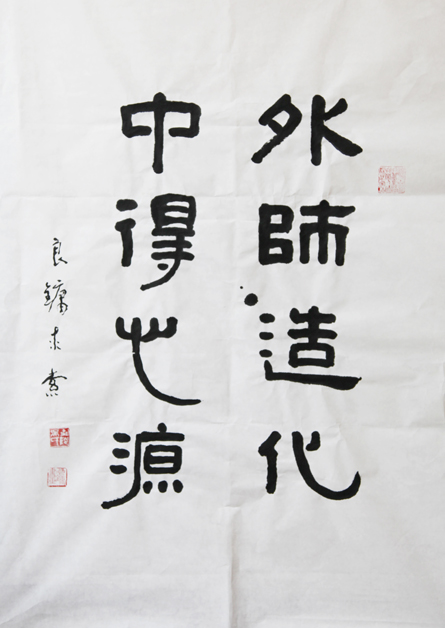 外師造化
中得心源
良鏞求索